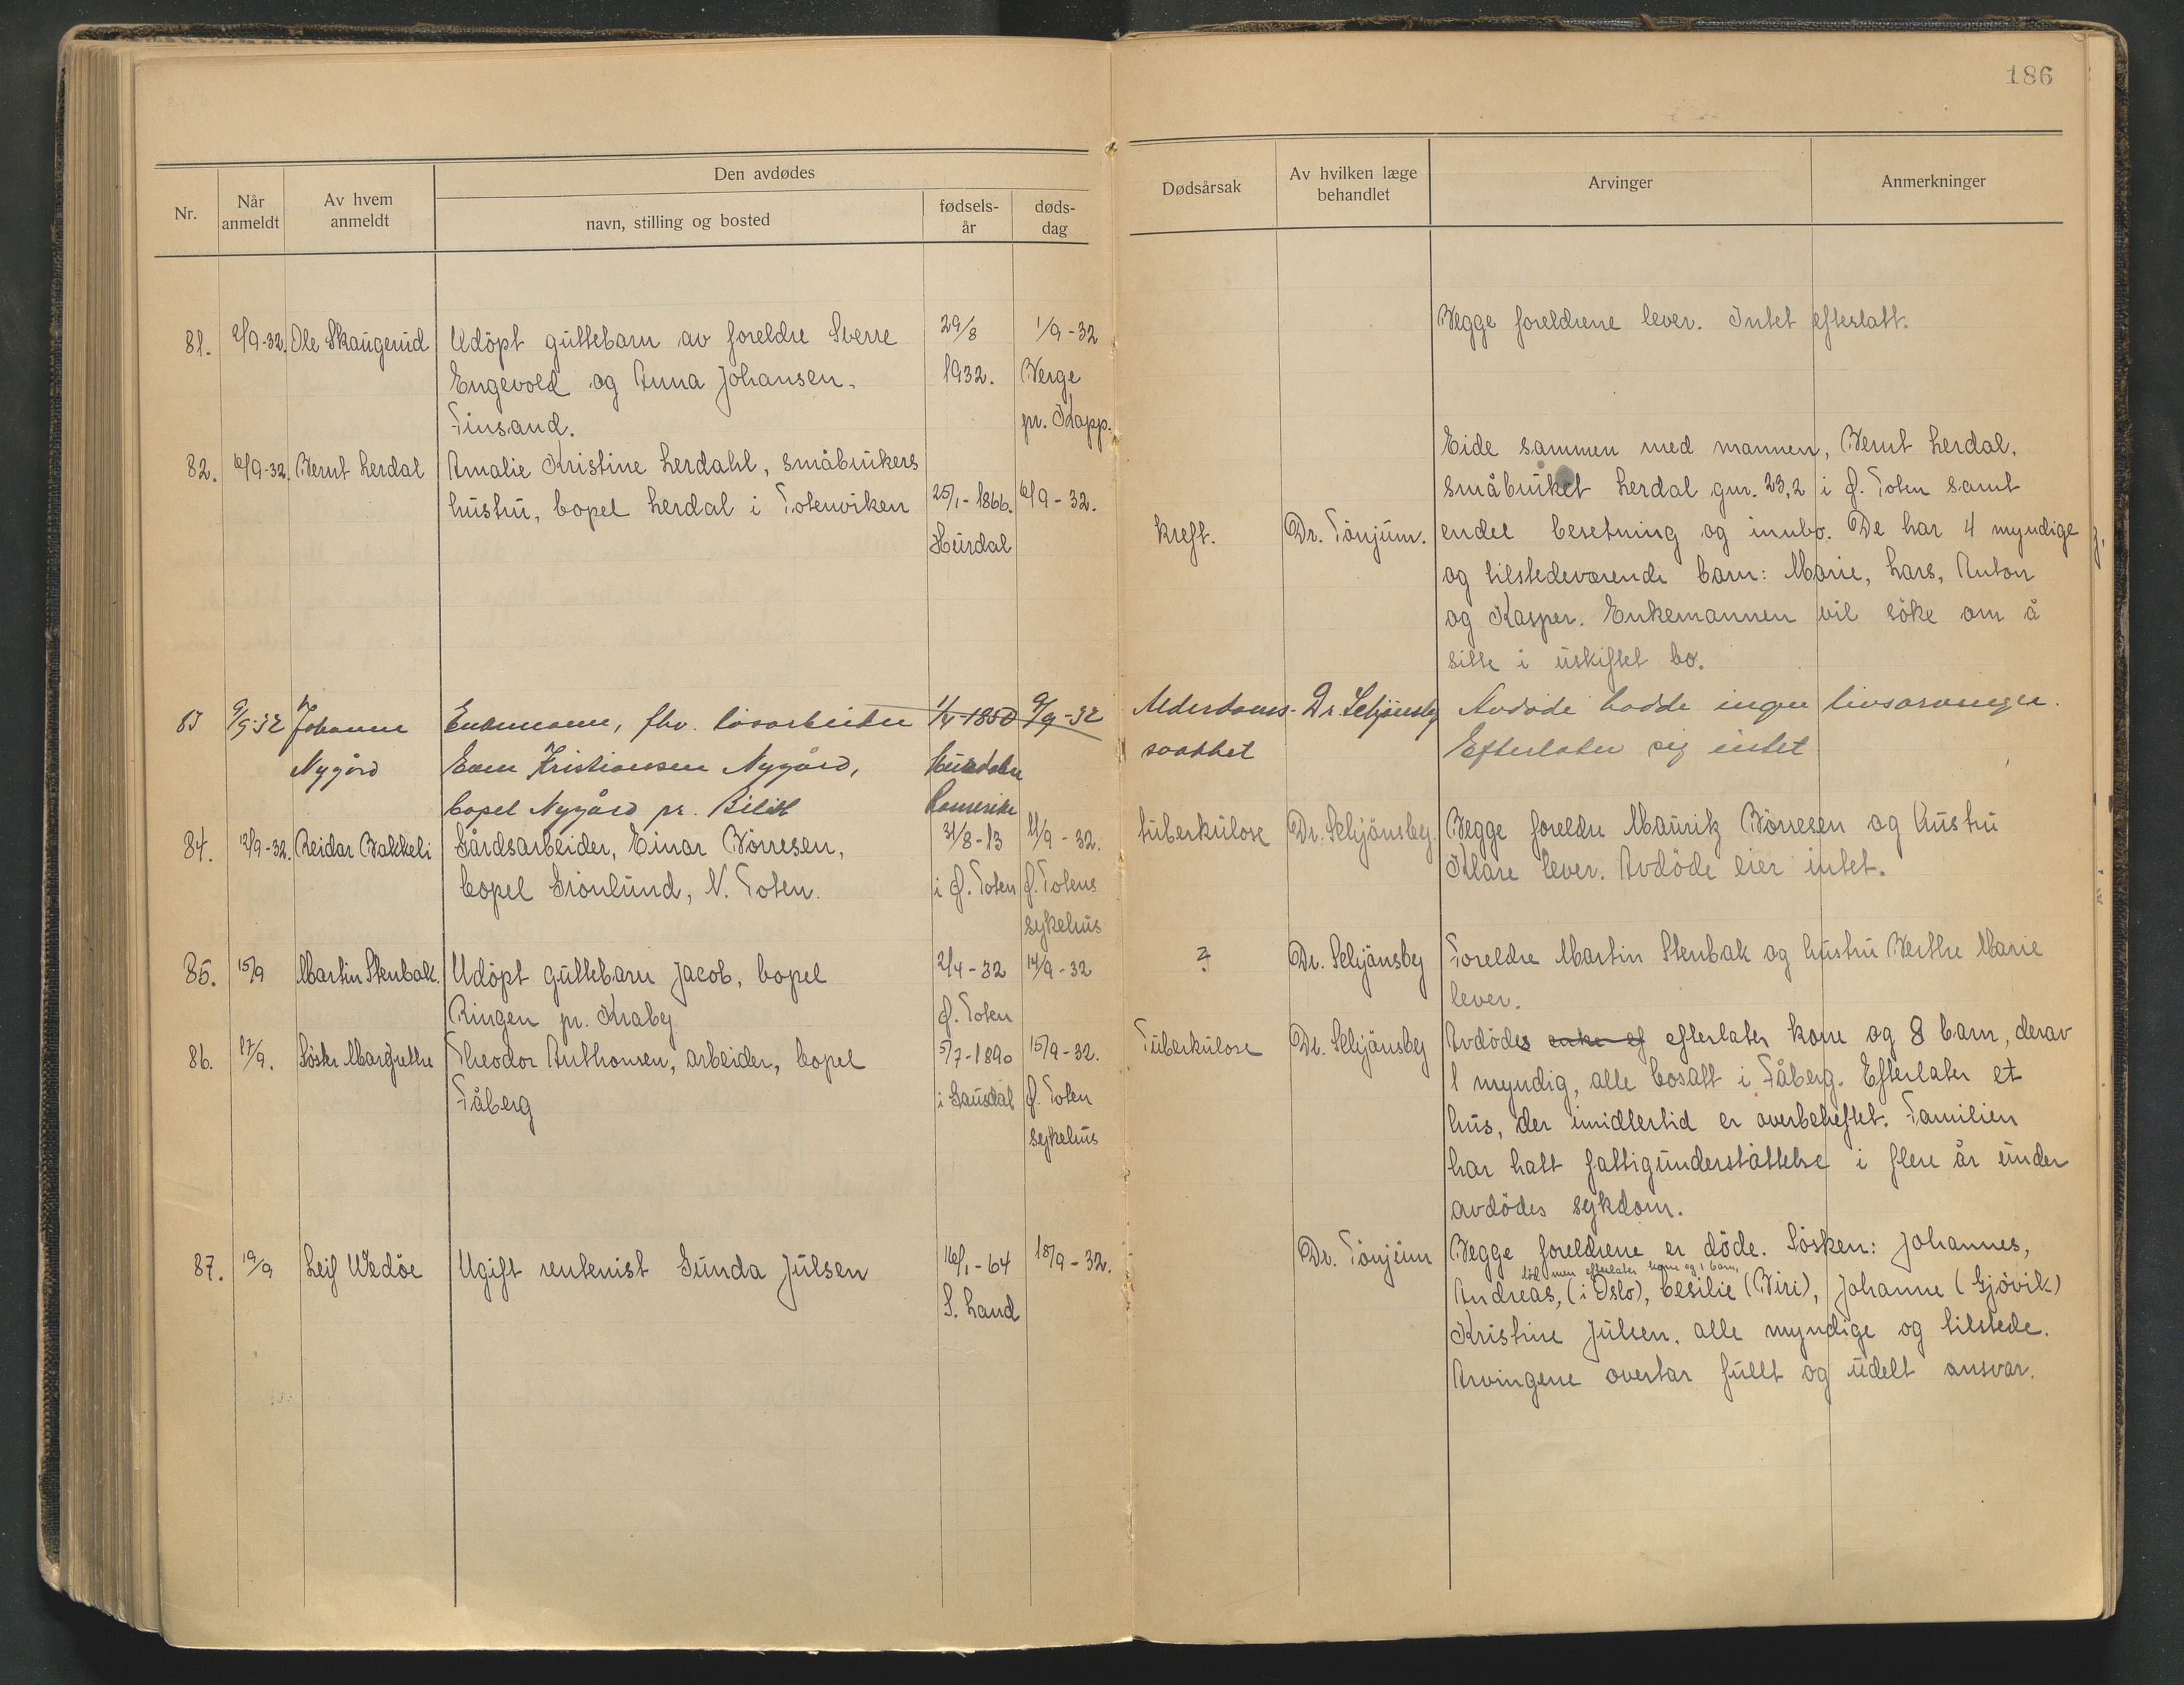 186
Nr.
Når anmeldt
Av hvem anmeldt
Den avdødes
navn, stilling og bosted
fødsels-år
døds-dag
Dødsårsak
Av hvilken læge behandlet
Arvinger
Anmerkninger
81. 2/9-32. Ole Skaugerud Udöpt guttebarn av foreldre Sverre 29/8 1/9-32 Begge foreldrene lever. Intet efterlatt.
Engevold og Anna Johansen, 1932. Verge
Finsand. pr. Kapp.
82. 6/9-32. Bernt Lerdal Amalie Kristine Lerdahl, småbrukers Eide sammen med mannen, Bernt Lerdal,
hustru, bopel Lerdal i Totenviken 25/1-1866. 6/9-32. småbruket Lerdal gnr. 23,2 i Ø. Toten samt
Hurdal kreft. Dr. Tönjum. endel besetning og innbo. De har 4 myndige
og tilstedeværende barn: Marie, Lars, Anton
og Kasper. Enkemannen vil söke om å
sitte i uskiftet bo.
83 9/9-32 Johanne Enkemann, fhv. løsarbeider 1/4-1850 9/9-32 Alderdoms- Dr. Schjönsby Avdøde hadde ingen livsarvinger.
Nygård Even Kristiansen Nygård, Hurdalen svakhet Efterlater sig intet
bopel Nygård pr. Bilitt Romerike
84. 12/9-32. Reidar Bakkeli Gårdsarbeider, Einar Börresen, 31/8-13 11/9-32. tuberkulose Dr. Schjönsby Begge foreldre Mauritz Börresen og hustru
bopel Grönlund, V. Toten. i Ø. Toten Ø. Totens Klare lever. Avdöde eier intet.
sykehus
85. 15/9 Martin Stenbak. Udöpt guttebarn Jacob, bopel 2/4-32 14/9-32 ? Dr. Schjönsby Foreldre Martin Stenbak og hustru Berthe Marie
Ringen pr. Kraby Ø. Toten lever.
86. 17/9. Söster Margrethe Theodor Anthonsen, arbeider, bopel 5/7-1890 15/9-32. Tuberkulose Dr. Schjönsby Avdödes enke ef efterlater kone og 8 barn, derav
Fåberg i Gausdal Ø. Toten 1 myndig, alle bosatt i Fåberg. Efterlater et
sykehus hus, der imidlertid er overbeheftet. Familien
har hatt fattigunderstöttelse i flere år under
avdödes sykdom.
87. 19/9 Leif Wedöe Ugift rentenist Gunda Julsen 16/1-64 18/9-32. Dr. Tönjum Begge foreldrene er döde. Sösken: Johannes,
död men efterlater kone og 1 barn,
S. Land Andreas, (i Oslo), Cesilie (Biri), Johanne (Gjövik)
Kristine Julsen, alle myndige og tilstede.
Arvingene overtar fullt og udelt ansvar.